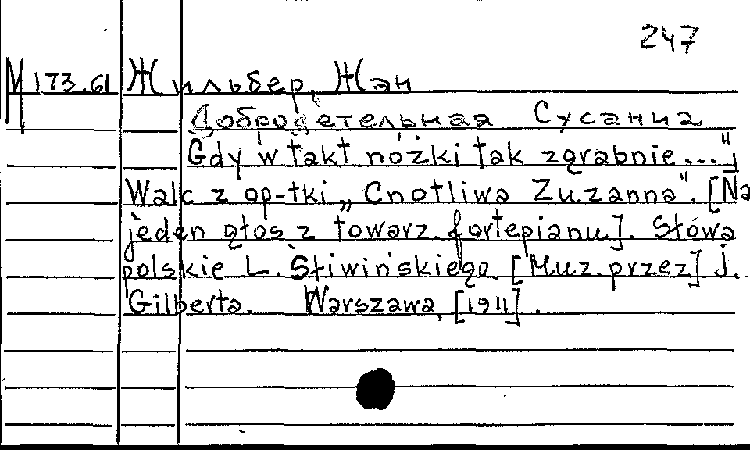 247
М 173.61 Жильбер, Жан
Добродетельная Сусанна
Gdy w takt nóżki tak zgrabnie..."
Walc z op-tki „Cnotliwa Zuzanna". [Na
jeden głos z towarz fortepianu]. Słowa
polskie L. Śliwińskiego. [Muz. przez] J.
Gilberta. Warszawa, [1911].